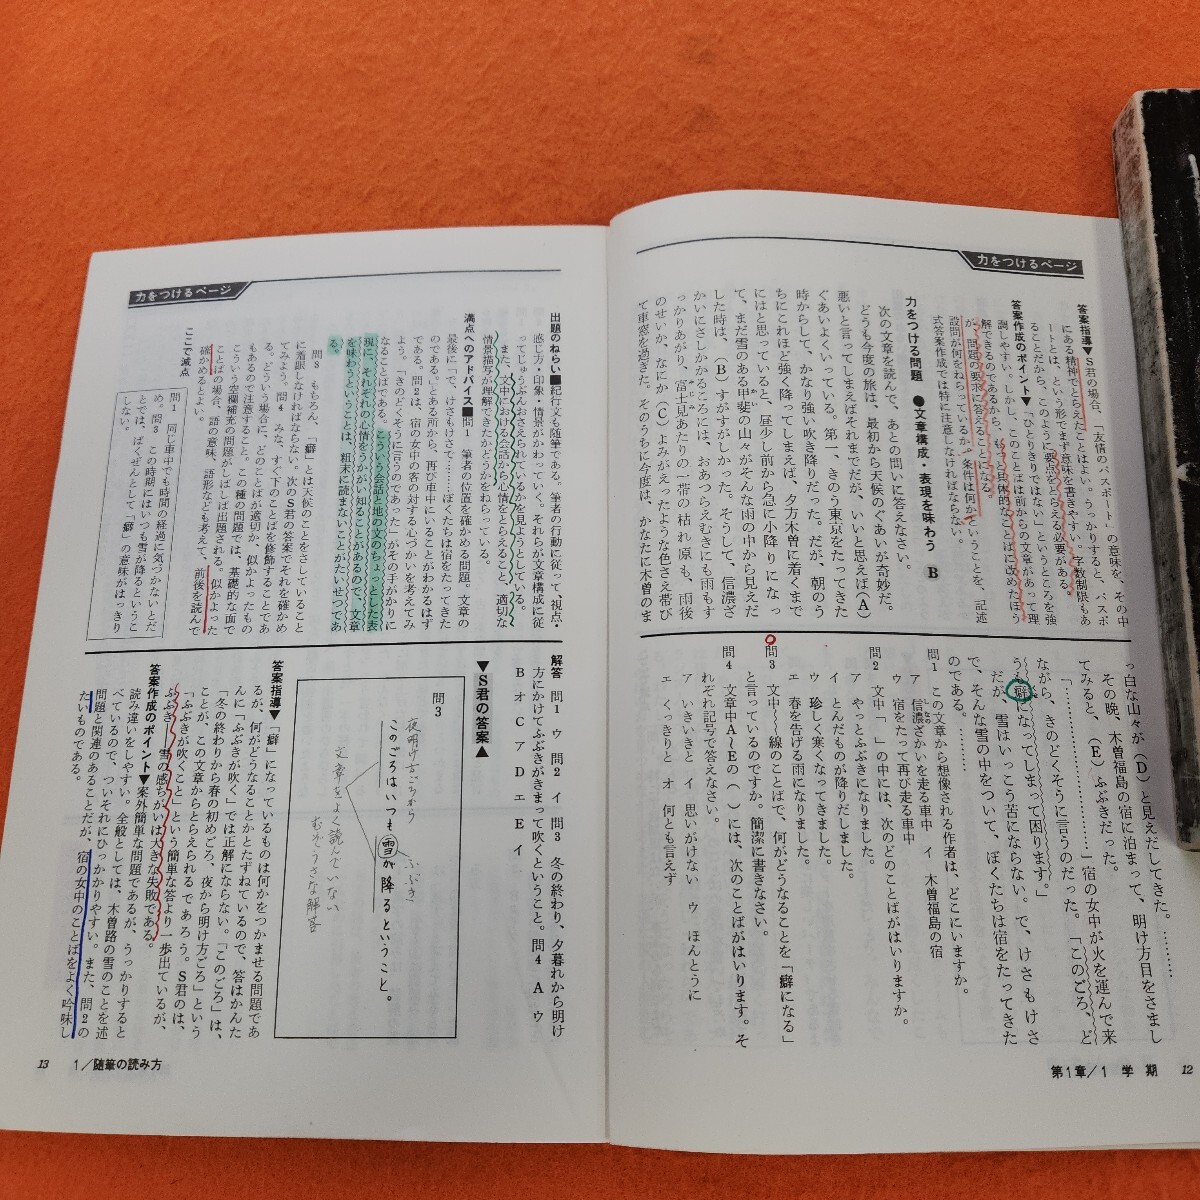 力をつけるページ
答案指導▼S君の場合、「友情のパスポート」の意味を、その中
にある精神でとらえたことはよい。うっかりすると、パスポ
ートとは、という形でまず意味を書きやすい。字数制限もあ
ることだから、このように要点をとらえる必要がある。
答案作成のポイント▼「ひとりきりではない」というところを強
調しやすい。しかし、このことばは前からの文章があって理
解できるのであるから、もっと具体的なことばに改めたほう
が、問題の要求に答えることになる。
設問が何をねらっているか。条件は何かということを、記述
式答案作成では特に注意しなければならない。
力をつける問題 ●文章構成・表現を味わう B
次の文章を読んで、あとの問いに答えなさい。
どうも今度の旅は、最初から天候のぐあいが奇妙だ。
悪いと言ってしまえばそれまでだが、いいと思えば(A)
ぐあいよくいっている。第一、きのう東京をたってきた
時からして、かなり強い吹き降りだった。だが、朝のう
ちにこれほど強く降ってしまえば、夕方木曽に着くまで
にはと思っていると、昼少し前から急に小降りになっ
て、まだ雪のある甲斐の山々がそんな雨の中から見えだ
した時は、(B)すがすがしかった。そうして、信濃ざ
かいにさしかかるころには、おあつらえむきに雨もす
っかりあがり、富士見あたりの一帯の枯れ原も、雨後
のせいか、なにか(C)よみがえったような色さえ帯び
て車窓を過ぎた。そのうちに今度は、かなたに木曽のま
っ白な山々が(D)と見えだしてきた。………
その晩、木曽福島の宿に泊まって、明け方目をさまし
てみると、(E)ふぶきだった。
「…………………」宿の女中が火を運んで来
ながら、きのどくそうに言うのだった。「このごろ、ど
うも癖になってしまって困ります。」
だが、雪はいっこう苦にならない。で、けさもけさ
で、そんな雪の中をついて、ぼくたちは宿をたってきた
のである。……
問1 この文章から想像される作者は、どこにいますか。
ア 信濃ざかいを走る車中 イ 木曽福島の宿
ウ 宿をたって再び走る車中
問2 文中「 」の中には、次のどのことばがはいりますか。
ア やっとふぶきになりました。
イ とんだものが降りだしました。
ウ 珍しく寒くなってきました。
エ 春を告げる雨になりました。
問3 文中〜〜線のことばで、何がどうなることを「癖になる」
と言っているのですか。簡潔に書きなさい。
問4 文章中A〜Eの( )には、次のことばがはいります。そ
れぞれ記号で答えなさい。
ア いきいきと イ 思いがけない ウ ほんとうに
エ くっきりと オ 何とも言えず
第1章/1 学期 12
力をつけるページ
出題のねらい■紀行文も随筆である。筆者の行動に従って、視点・
感じ方・印象・情景がかわっていく。それらが文章構成に従
ってじゅうぶんおさえられているかを見ようとしている。
また、文中における会話から心情をとらえること、適切な
情景描写が理解できたかどうかをねらっている。
満点へのアドバイス■問1 筆者の位置を確かめる問題。文章の
最後に「で、けさもけさで……ぼくたちは宿をたってきた
のである。」とある所から、再び車中にいることがわかるはず
である。問2は、宿の女中の客の対する心づかいを考えてみ
よう。「きのどくそうに言うのであった」がその手がかりに
なることばである。こういう会話と地の文のちょっとした表
現に、それぞれの心情をうかがい知ることがあるので、文章
を味わうということは、粗末に読まないことがたいせつであ
る。
問3 もちろん、「癖」とは天候のことをさしていること
に着眼しなければならない。次のS君の答案でそれを確かめ
てみよう。問4 みな、すぐ下のことばを修飾することであ
る。どういう場合に、どのことばが適切か、似かよったもの
もあるので注意すること。この種の問題では、基礎的な面で
こういう空欄補充の問題がしばしば出題される。似かよった
ことばの場合、語の意味、語形なども考えて、前後を読んで
確かめるとよい。
ここで減点
問1 同じ車中でも時間の経過に気づかないとだ
め。問3 この時期にはいつも雪が降るというこ
とでは、ばくぜんとして「癖」の意味がはっきり
しない。
解答 問1 ウ 問2 イ 問3 冬の終わり、夕暮れから明け
方にかけてふぶきがきまって吹くということ。問4 A ウ
B オ C ア D エ E イ
▼S君の答案▲
問3
このごろはいつも雪が降るということ。
夜明け方ごろから
ふぶき
文章をよく読んでいない
むぞうさな解答
答案指導▼「癖」になっているものは何かをつかませる問題であ
るが、何がどうなることかとたずねているので、答はかんた
んに「ふぶきが吹く」では正解にならない。「このごろ」は、
「冬の終わりから春の初めごろ、夜から明け方ごろ」という
ことが、この文章からとらえられるであろう。S君のは、
「ふぶきが吹くこと」という簡単な答より一歩出ているが、
ふぶき――雪の感ちがいは大きな失敗である。
答案作成のポイント▼案外簡単な問題であるが、うっかりすると
読み違いをしやすい。全般としては、木曽路の雪のことを述
べているので、ついそれにひっかかりやすい。また、問2の
問題と関連のあることだが、宿の女中のことばをよく吟味し
たいものである。
13 1/随筆の読み方